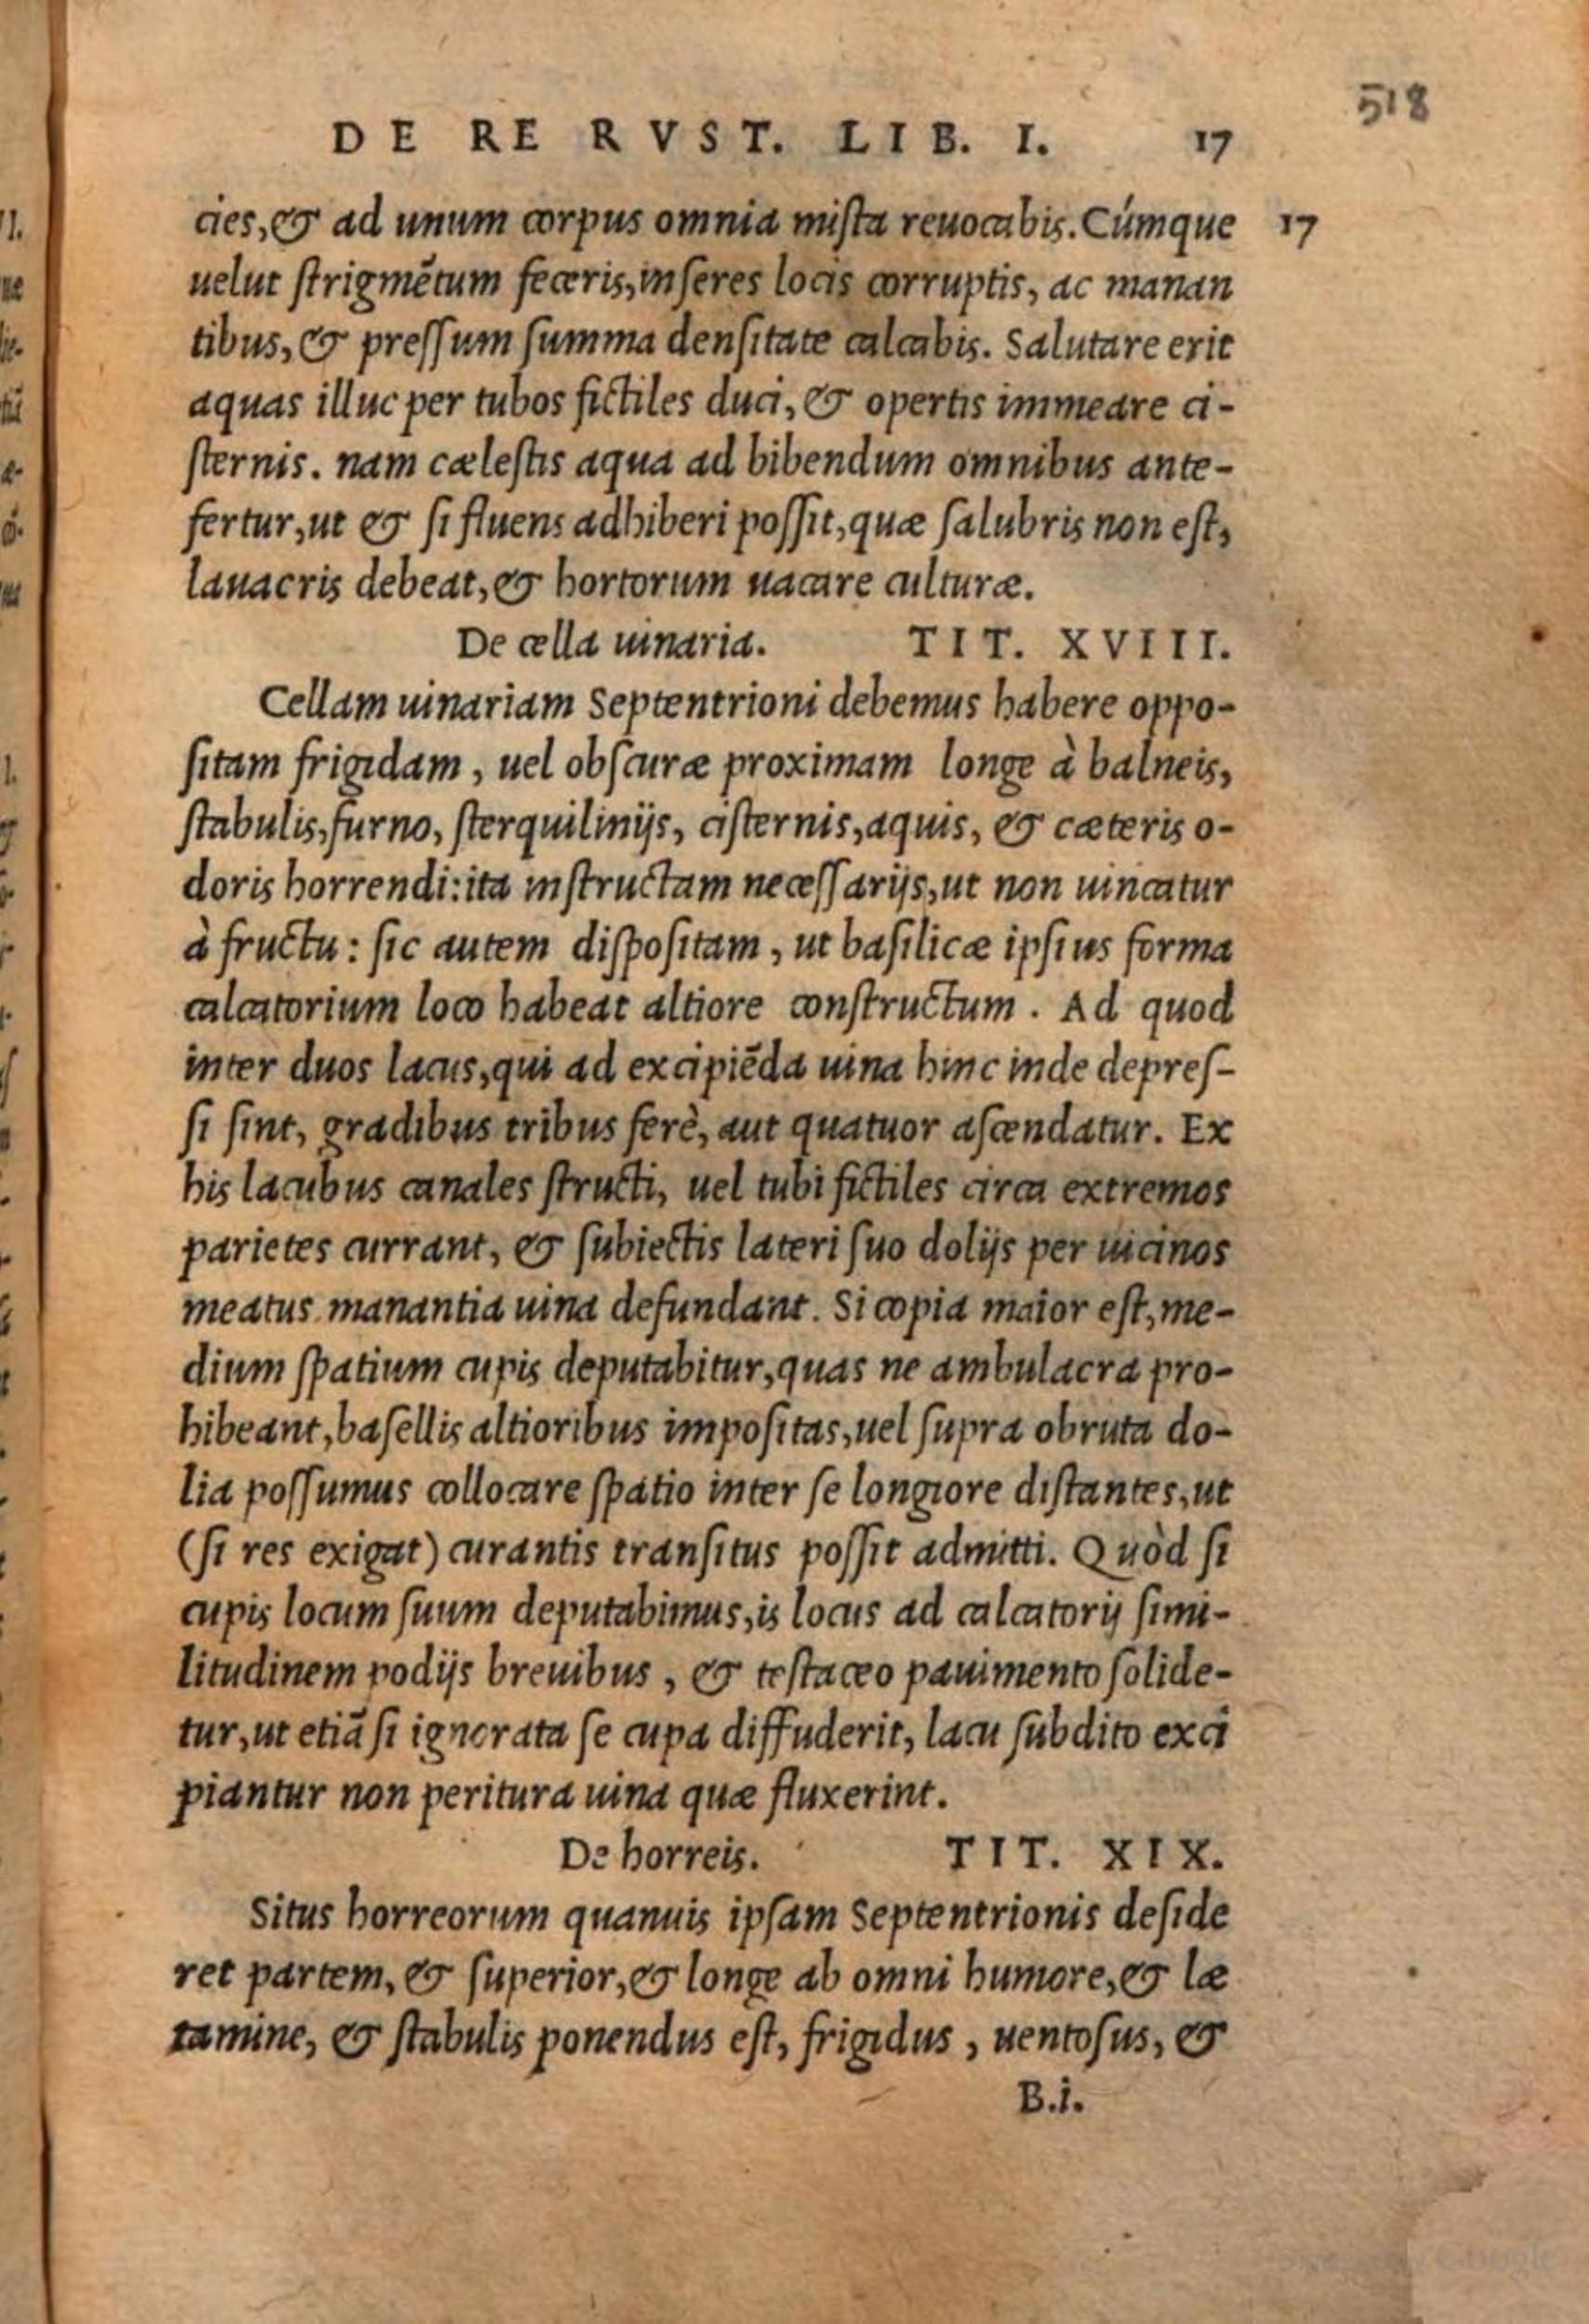 518
DE RE RVST. LIB. I. 17
cies, & ad unum corpus omnia miſta reuocabis. Cúmque 17
uelut ſtrigmẽtum feceris, inſeres locis corruptis, ac manan
tibus, & preſſum ſumma denſitate calcabis. Salutare erit
aquas illuc per tubos fictiles duci, & opertis immeare ci-
ſternis. nam cæleſtis aqua ad bibendum omnibus ante-
fertur, ut & ſi fluens adhiberi poſſit, quæ ſalubris non eſt,
lauacris debeat, & hortorum uacare culturæ.
De cella uinaria. TIT. XVIII.
Cellam uinariam Septentrioni debemus habere oppo-
ſitam frigidam, uel obſcuræ proximam longe à balneis,
ſtabulis, furno, ſterquilinijs, ciſternis, aquis, & cæteris o-
doris horrendi: ita inſtructam neceſſarijs, ut non uincatur
à fructu: ſic autem diſpoſitam, ut baſilicæ ipſius forma
calcatorium loco habeat altiore conſtructum. Ad quod
inter duos lacus, qui ad excipiẽda uina hinc inde depreſ-
ſi ſint, gradibus tribus ferè, aut quatuor aſcendatur. Ex
his lacubus canales ſtructi, uel tubi fictiles circa extremos
parietes currant, & ſubiectis lateri ſuo dolijs per uicinos
meatus manantia uina defundant. Si copia maior eſt, me-
dium ſpatium cupis deputabitur, quas ne ambulacra pro-
hibeant, baſellis altioribus impoſitas, uel ſupra obruta do-
lia poſſumus collocare ſpatio inter ſe longiore diſtantes, ut
(ſi res exigat) curantis tranſitus poſſit admitti. Quòd ſi
cupis locum ſuum deputabimus, is locus ad calcatorij ſimi-
litudinem podijs breuibus, & teſtaceo pauimento ſolide-
tur, ut etiã ſi ignorata ſe cupa diffuderit, lacu ſubdito exci
piantur non peritura uina quæ fluxerint.
De horreis. TIT. XIX.
Situs horreorum quanuis ipſam Septentrionis deſide
ret partem, & ſuperior, & longe ab omni humore, & læ
tamine, & ſtabulis ponendus eſt, frigidus, uentoſus, &
B.i.